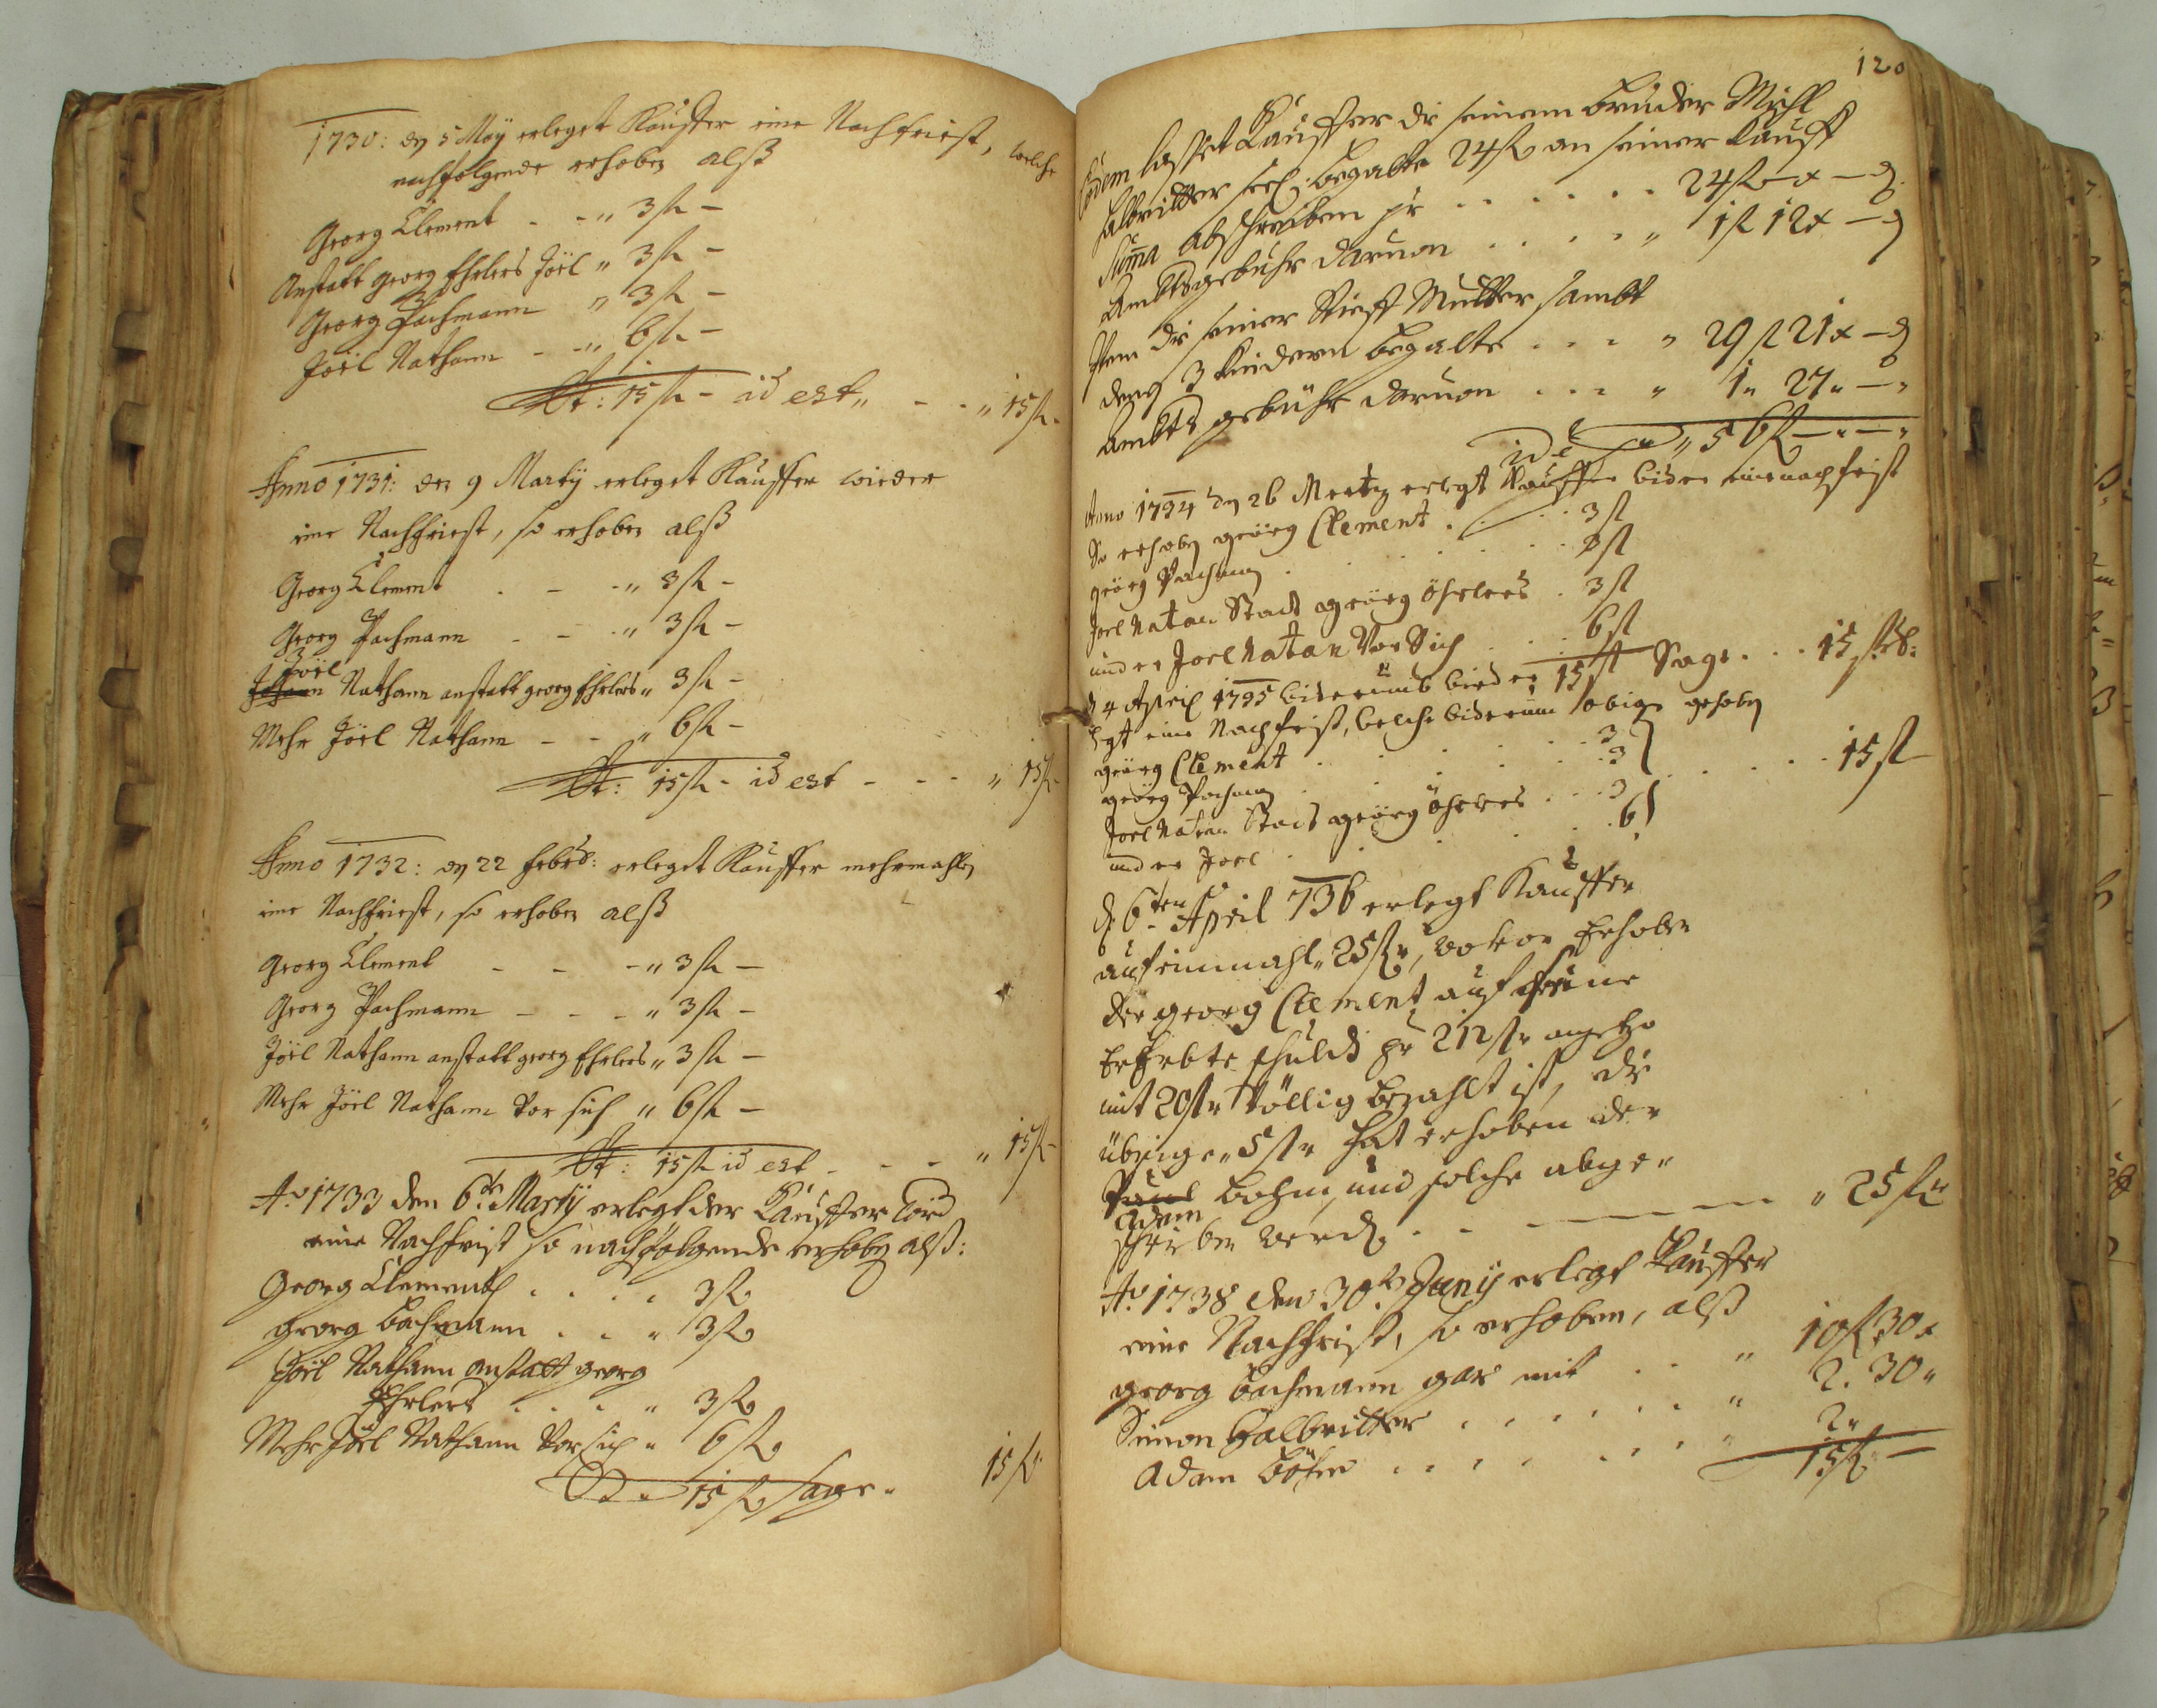 1730: den 5 May erleget Kauffer eine Nachfriest, welche
nachfolgende erhoben alß
Georg Clement - - „ 3 fl -
Anstatt Georg Ehrlers Joël „ 3 fl -
Georg Pachmann „ 3 fl -
Joël Nathann - - „ 6 fl -
Lt: 15 fl - id est „ - - „ 15 fl -
Anno 1731: den 9 Marty erleget Kauffer wieder
eine Nachfriest, so erhoben alß
Georg Clement . - - „ 3 fl -
Georg Pachmann - - „ 3 fl -
Joël
Johann Nathann anstatt georg Ehrlers „ 3 fl -
Mehr Joël Nathann - - „ 6 fl -
Lt: 15 fl - id est - - - „ 15 fl -
Anno 1732: den 22 Febr: erleget Kauffer mehrmahlen
eine Nachfriest, so erhoben alß
Georg Clement - - - „ 3 fl -
Georg Pachmann - - - „ 3 fl -
Joël Nathann anstatt georg Ehrlers „ 3 fl -
Mehr Joël Nathann vor sich „ 6 fl -
Lt: 15 fl id est - - - „ 15 fl -
Ao 1733 den 6ten Marty erlegt der Kauffer
eine Nachfrist so nachfolgende erhoben alß:
Georg Clement . . . . 3 fl
Georg Bachmann . . „ 3 fl
Joël Nathann anstatt georg
Ehrlers . . . „ 3 fl
Mehr Joël Nathann vor sich „ 6 fl
15 fl sage „ 15 fl
120
Eodem lasset Kauffer die seinem bruder Michl
Halbritter seel: bezalte 24 fl an seiner Kauff
Suma abschreiben pr . . . . . 24 fl - x - d
Ambtsgebühr daruon . . . . „ 1 fl 12 x - d
Item die seiner Stieff Mutter sambt
denen 3 Kindern bezalte . . . „ 29 fl 21 x - d
Ambts gebühr daruon . . . „ 1 „ 27 „ - „
id e „ 56 fl - „ - „
Anno 1734 den 26 Mertz erlegt Kauffer bider eine nachfrist
So erhoben geörg Clement . . . 3 fl
geörg Pachman . . . . . . 3 fl
Joel Natan Stadt geörg Öhrlers . 3 fl
und er Joel Natan Vor Sich . . . 6 fl
15 fl Sage . . . 15 fl
d 4 April 1735 biderumb
legt eine Nachfrist, belche biderum obige gehoben
geörg Clement . . . . . . . 3
geörg Pachman . . . . . . . 3
Joel Natan Stadt geörg Öhrlers . . . 3
und er Joel . . . . . . . 6 . . . . . 15 fl -
d. 6ten April 736 erlegt Kauffer
auf einmahl „ 25 fl „, wovon Erhoben
der georg Clement auf seine
Ererbte schuld pr 212 fl
mit 20 fl „ völlig bezahlt ist, die
übrige „ 5 fl „ hat erhoben der
Paul bohm, und solche abge „
Adam
schrieben werd. . - - - - „ 25 fl „
Ao 1738 den 30ten Juny erlegt Kauffer
eine Nachfrist, so erhoben, alß
georg bachmann gar mit . . „ 10 fl 30 x
Simon Halbritter . . . . . . „ 2. 30 „
Adam böhm . . . . . . . „ 2 „
15 fl -